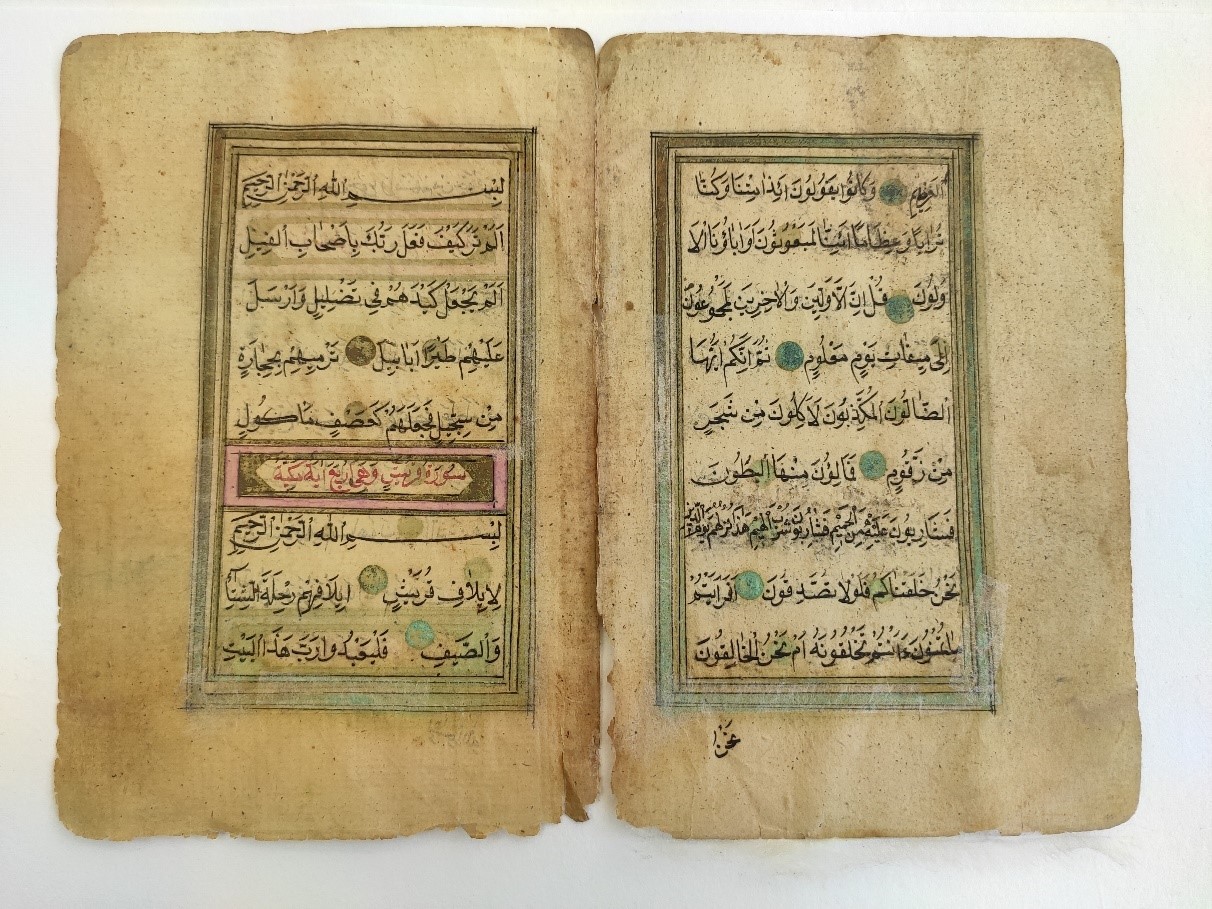 العظيم وَكَانُوا يَقُولُونَ ائِذَا مِتْنَا وَكُنَّا
تُرَابًا وَعِظَامًا ائِنَّا لَمَبْعُوثُونَ اَوَ ابَاؤُنَا الْاَ
وَّلُونَ قُلْ اِنَّ الْاَوَّلِينَ وَالْاخِرِينَ لَمَجْمُوعُونَ
اِلَى مِيقَاتِ يَوْمٍ مَعْلُومٍ ثُمَّ اِنَّكُمْ اَيُّهَا
الضَّالُّونَ الْمُكَذِّبُونَ لَاكِلُونَ مِنْ شَجَرٍ
مِنْ زَقُّومٍ فَمَالِؤُنَ مِنْهَا الْبُطُونَ
فَشَارِبُونَ عَلَيْهِ مِنَ الْحَمِيمِ فَشَارِبُونَ شُرْبَ الْهِيمِ هَذَا نُزُلُهُمْ يَوْمَ الدِّينِ
نَحْنُ خَلَقْنَاكُمْ فَلَوْلَا تُصَدِّقُونَ اَفَرَاَيْتُمْ
مَا تُمْنُونَ ءَاَنْتُمْ تَخْلُقُونَهُ اَمْ نَحْنُ الْخَالِقُونَ
نَحْنُ
بِسْمِ اللهِ الرَّحْمَنِ الرَّحِيمِ
اَلَمْ تَرَ كَيْفَ فَعَلَ رَبُّكَ بِاَصْحَابِ الْفِيلِ
اَلَمْ يَجْعَلْ كَيْدَهُمْ فِى تَضْلِيلٍ وَاَرْسَلَ
عَلَيْهِمْ طَيْرًا اَبَابِيلَ تَرْمِيهِمْ بِحِجَارَةٍ
مِنْ سِجِّيلٍ فَجَعَلَهُمْ كَعَصْفٍ مَاكُولٍ
سُورَةُ قريش وَهِىَ اربع ايَة مَكِّيَّة
بِسْمِ اللهِ الرَّحْمَنِ الرَّحِيمِ
لِاِيلَافِ قُرَيْشٍ اِيلَافِهِمْ رِحْلَةَ الشِّتَاءِ
وَالصَّيْفِ فَلْيَعْبُدُوا رَبَّ هَذَا الْبَيْتِ